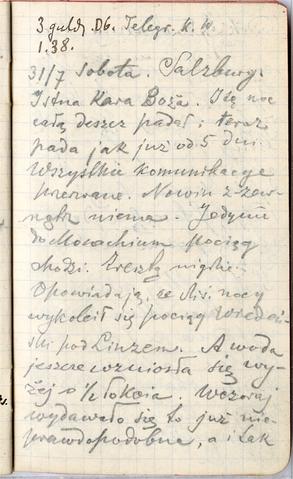 3 guld. D6. Telegr. K. W.
1.38.
31/7 Sobota. Salzburg.
Istna Kara Boża. I tę noc
całą deszcz padał i teraz
pada jak już od 5 dni
Wszystkie komunikacye
przerwane. Nowin z zew-
nątrz niema. Jedynie
do Monachium pociąg
chodzi. Zresztą nigdzie.
Opowiadają, że dziś. nocy
wykoleił się pociąg wiedeń-
ski pod Linzem. A woda
jeszcze wzniosła się wy-
żej o ½ łokcia. Wczoraj
wydawało się to już nie-
prawdopodobne, a i tak